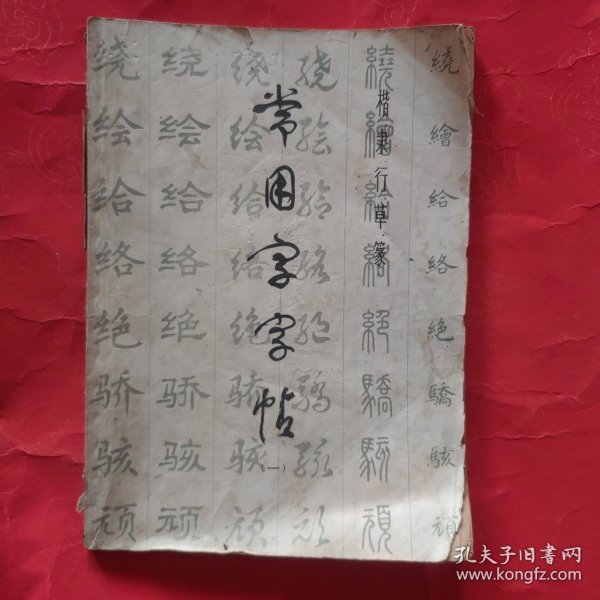 常用字字帖
(一)
楷·隶·行·草·篆
绕 绕 绕 绕 繞 繞
绘 绘 绘 绘 繪 繪
给 给 给 给 給 給
络 络 络 络 絡 絡
绝 绝 绝 绝 絕 絶
骄 骄 骄 骄 驕 驕
骇 骇 骇 骇 駭 駭
顽 顽 顽 顽 頑 頑
孔夫子旧书网
www.kongfz.com